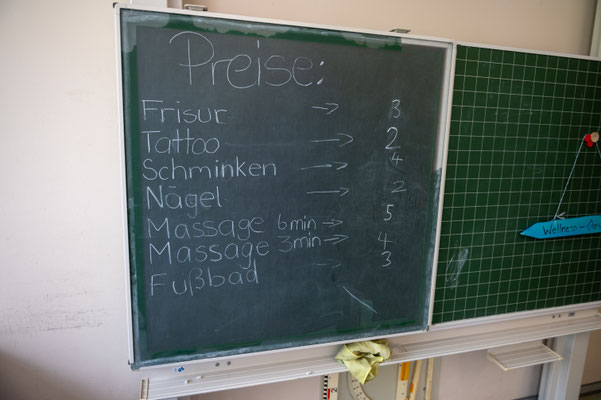 Preise:
Frisur → 3
Tattoo → 2
Schminken → 4
Nägel → 2
Massage 6min → 5
Massage 3min → 4
Fußbad 3
Wellness-